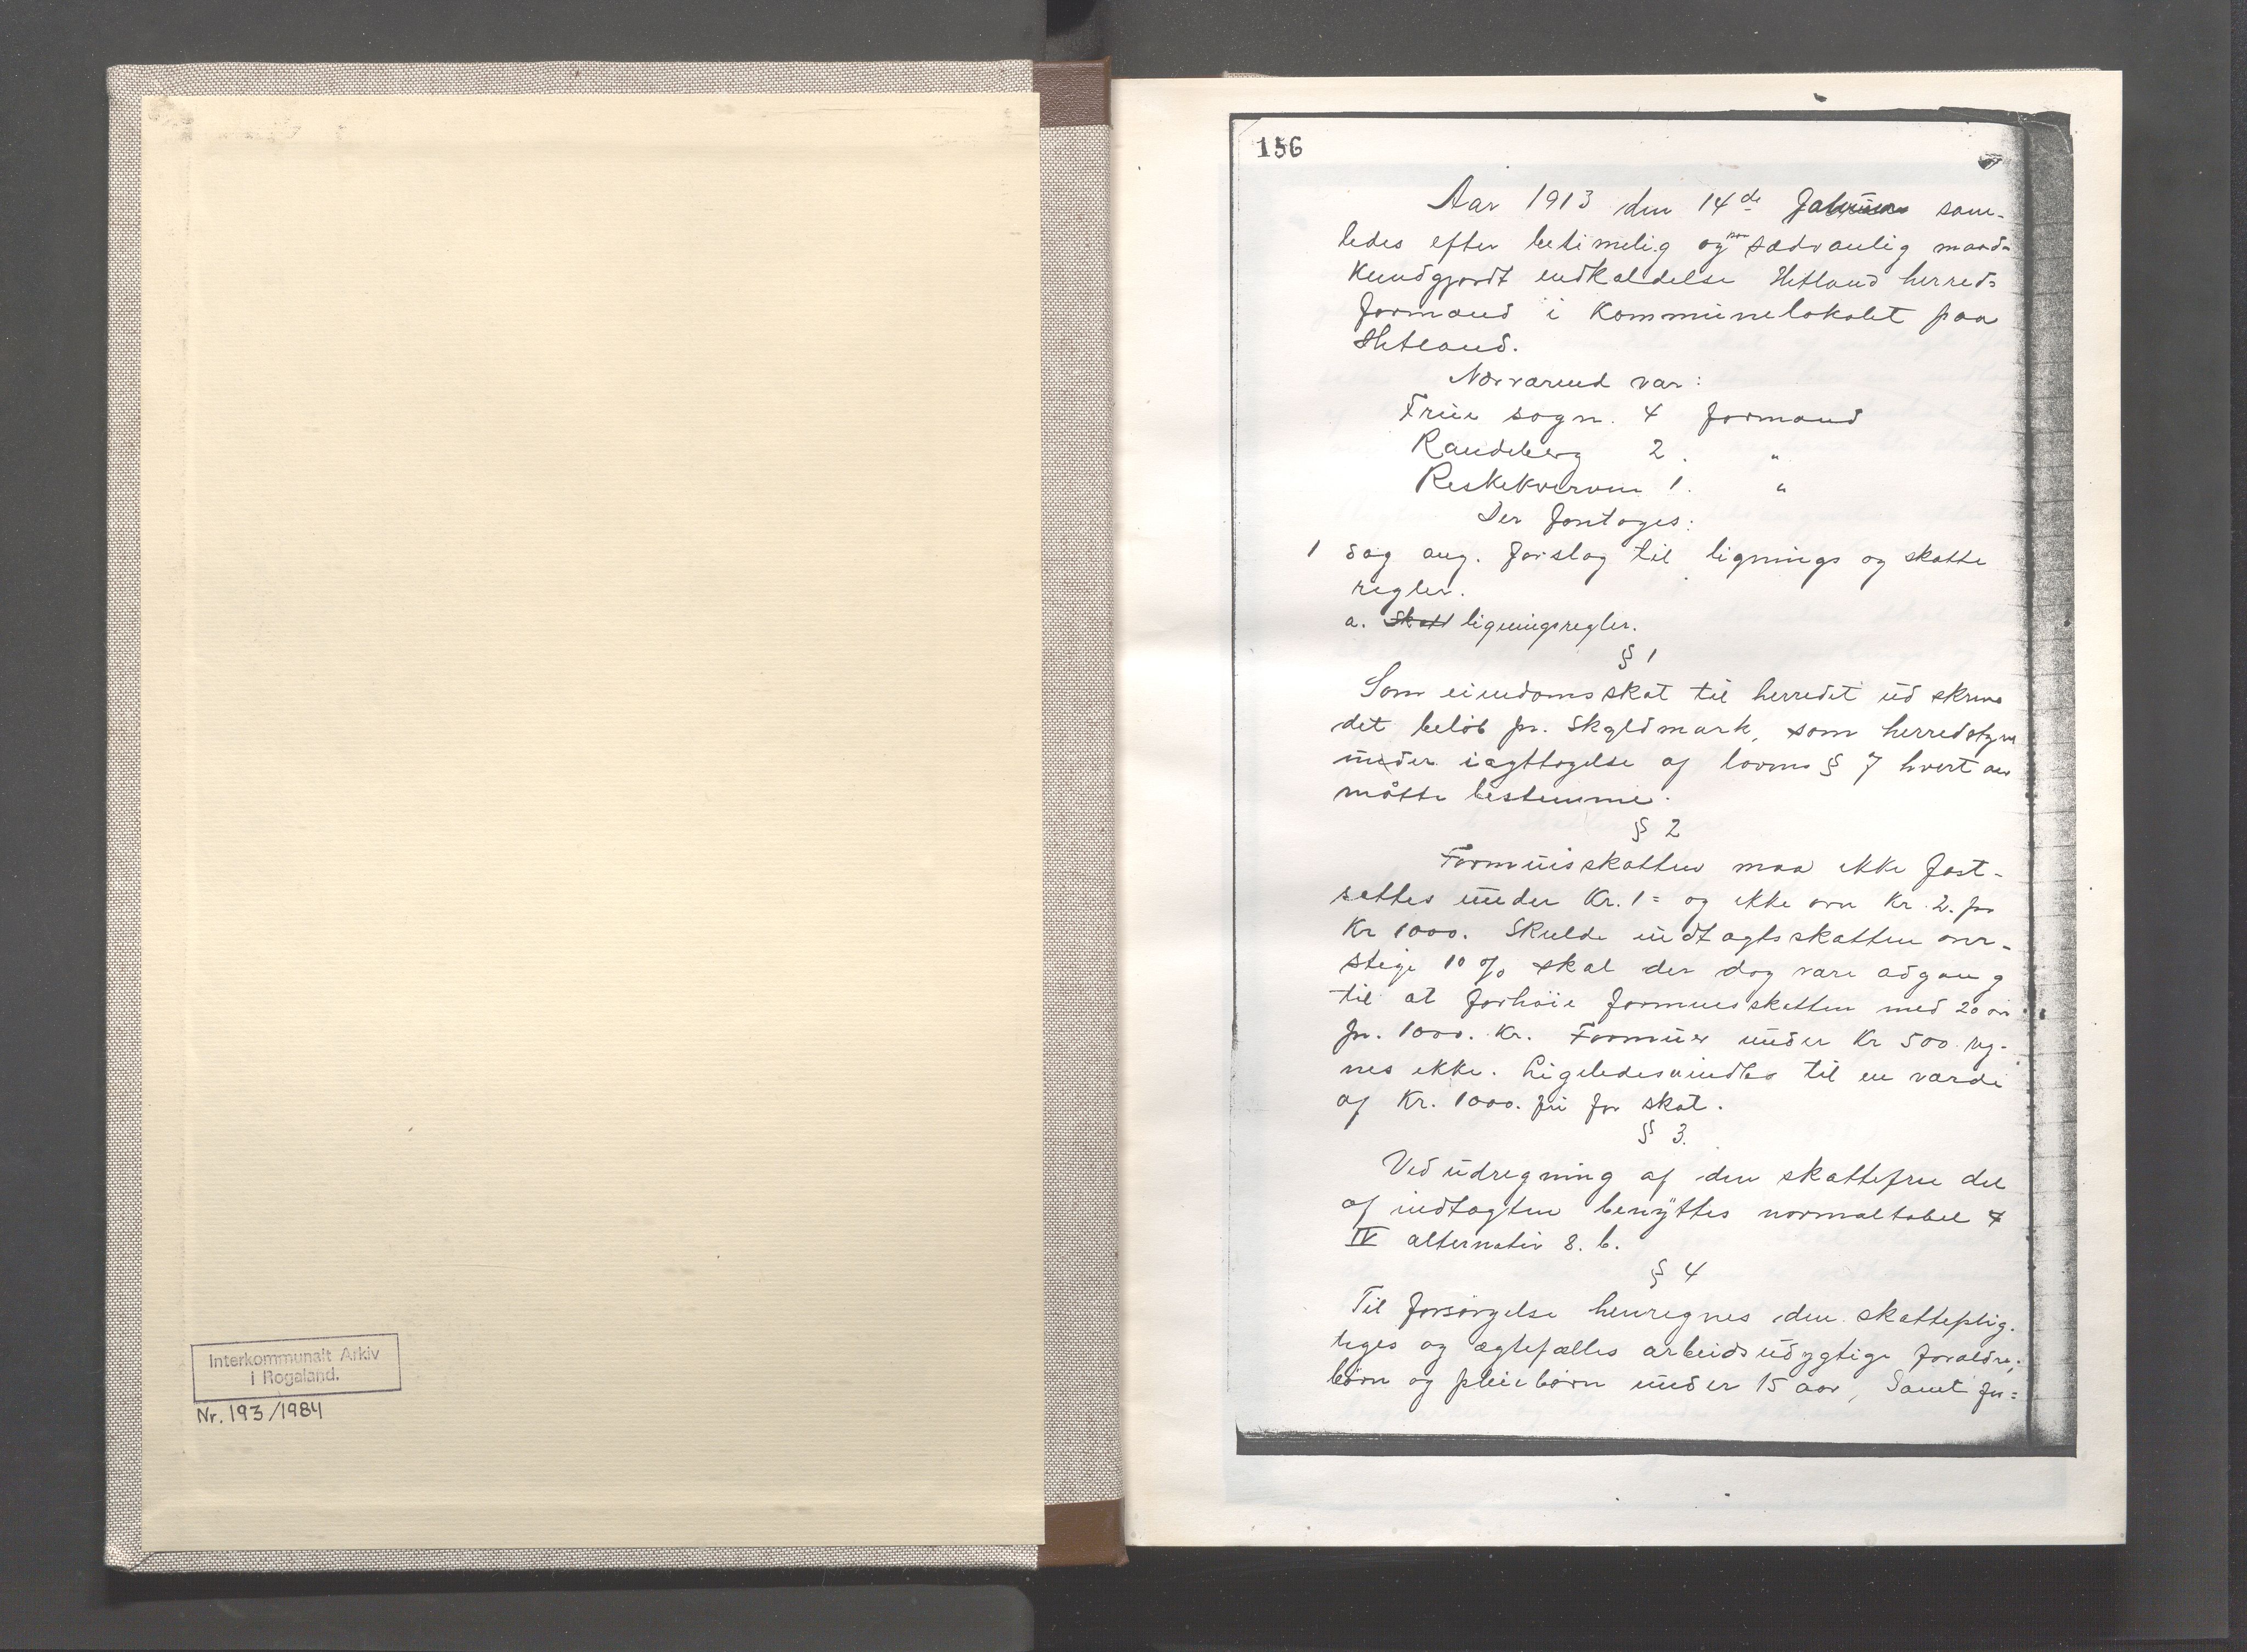 Interkommunalt Arkiv
i Rogaland.
Nr. 193/1984
156
Aar 1913 den 14de sam-
ledes efter betimelig og paa sædvanlig maade
Kundgjordt indkaldelse Hetland herreds
formænd i Kommunelokalet paa
Hetland.
Nærværend var:
Frue sogn. 4 formænd
Randeberg 2. "
Reskekverven 1. "
Der foretages:
1 Sag ang. forslag til lignings og skatte
regler.
a. Skatt ligningsregler.
§ 1
Som eiendomsskat til herredet udskrives
det beløb pr. Skyldmark, som herredstyret
under iagttagelse af lovens § 7 hvert aar
måtte bestemme.
§ 2
Formuesskatten maa ikke fast-
settes under Kr. 1= og ikke over Kr 2. pr
Kr 1000. Skulde indtægtsskatten over-
stige 10 % skal der dog være adgang
til at forhøie formuesskatten med 20 øre
pr. 1000. Kr. Formuer under Kr 500 reg-
nes ikke. Ligeledes indbo til en værdi
af Kr. 1000. fri for skat.
§ 3.
Ved udregning af den skattefrie del
af indtægten benyttes normaltabel 4
IV alternativ 8. b.
§ 4
Til forsørgelse henregnes den skatteplig-
tiges og ægtefælles arbeidsudygtige forældre,
børn og pleiebørn under 15 aar, Samt for=